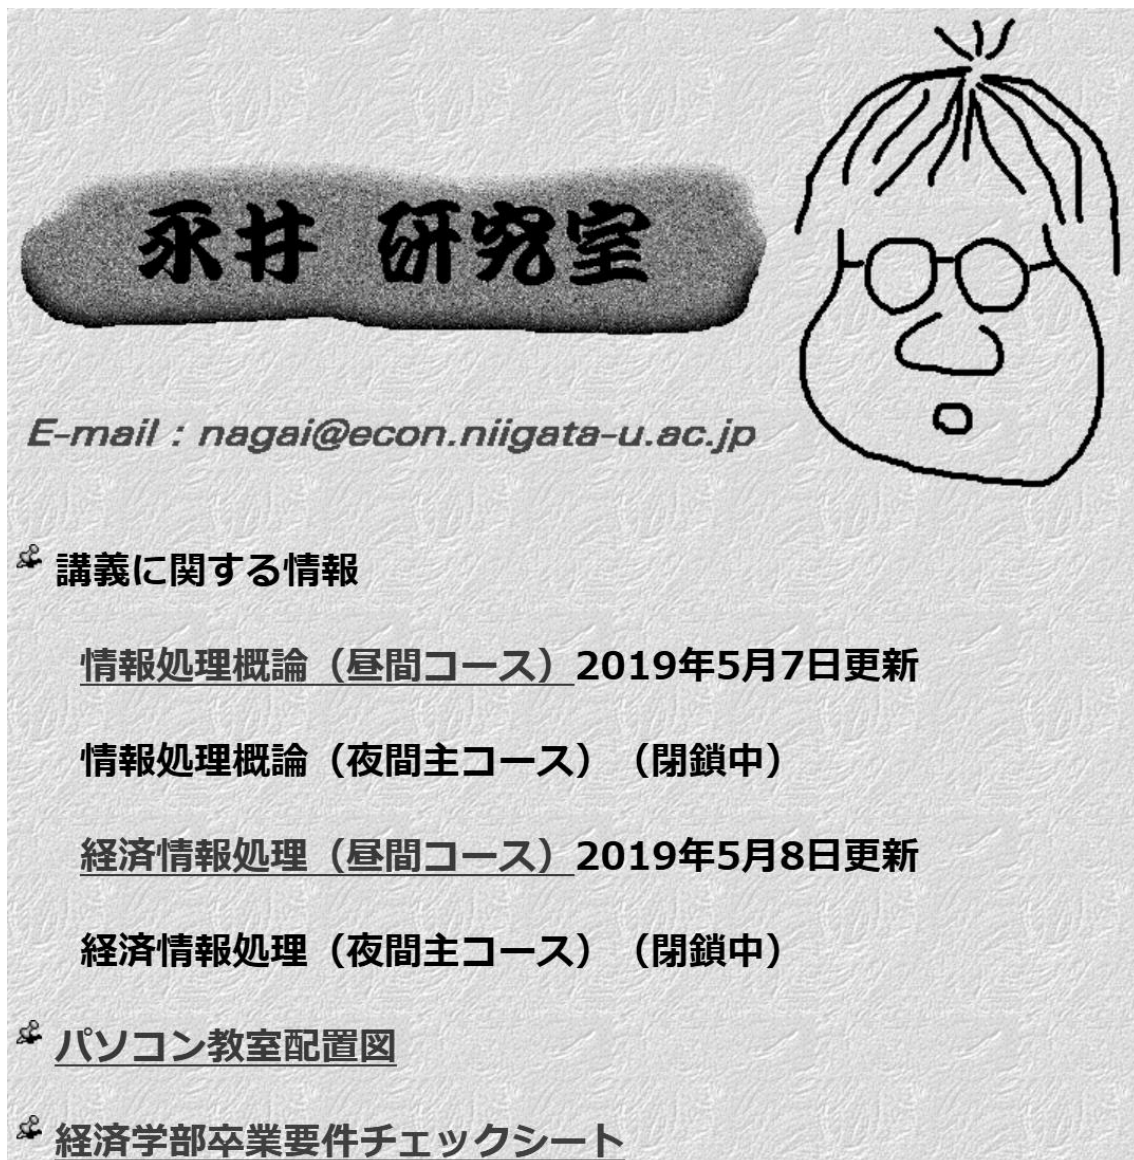 永井 研究室
E-mail : nagai@econ.niigata-u.ac.jp
講義に関する情報
情報処理概論（昼間コース）2019年5月7日更新
情報処理概論（夜間主コース）（閉鎖中）
経済情報処理（昼間コース）2019年5月8日更新
経済情報処理（夜間主コース）（閉鎖中）
パソコン教室配置図
経済学部卒業要件チェックシート